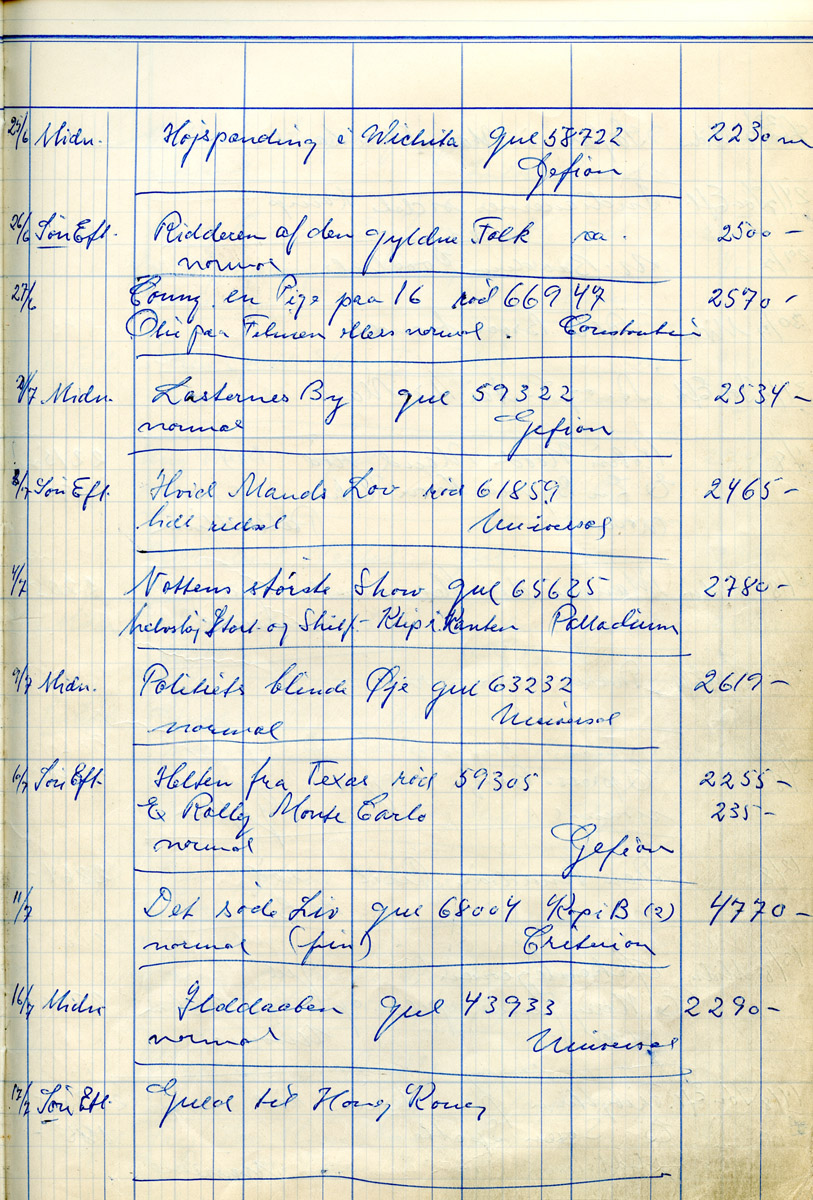 25/6 Midn. Højspænding i Wichita gul 58722 2230 m
Gefion
26/6 Søn Eft. Ridderen af den gyldne Falk 2500 -
normal
27/6 Conny en Pige paa 16 rød 66947 2570 -
Olie paa Filmen ellers normal. Constantin
2/7 Midn. Lasternes By gul 59322 2534 -
normal Gefion
3/7 Søn Eft. Hvid Mands Lov rød 61859 2465 -
lidt ridset Universal
4/7 Nattens største Show gul 65625 2780 -
Start og Skilt - Klip i Kanten Palladium
9/7 Midn. Politiets blinde Øje gul 63232 2619 -
normal Universal
10/7 Søn Eft. Helten fra Texas rød 59305 2255 -
E Rally Monte Carlo 235 -
normal Gefion
11/7 Det søde Liv gul 68004 Kopi B (2) 4770 -
normal (fin) Criterion
16/7 Midn Ilddaaben gul 43933 2290 -
normal Universal
17/7 Søn Eft. Guld til Hong Kong